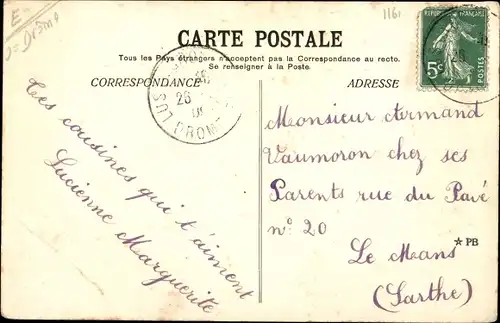 E=
Drôme
1161
CARTE POSTALE
Tous les Pays étrangers n'acceptent pas la Correspondance au recto.
Se renseigner à la Poste.
CORRESPONDANCE
ADRESSE
REPUBLIQUE FRANÇAISE
5c
26
LUS DROME
Tes cousines qui t'aiment
Lucienne Marguerite
Monsieur Armand
Vaumoron chez ses
Parents rue du Pavé
n° 20
Le Mans
(Sarthe)
PB